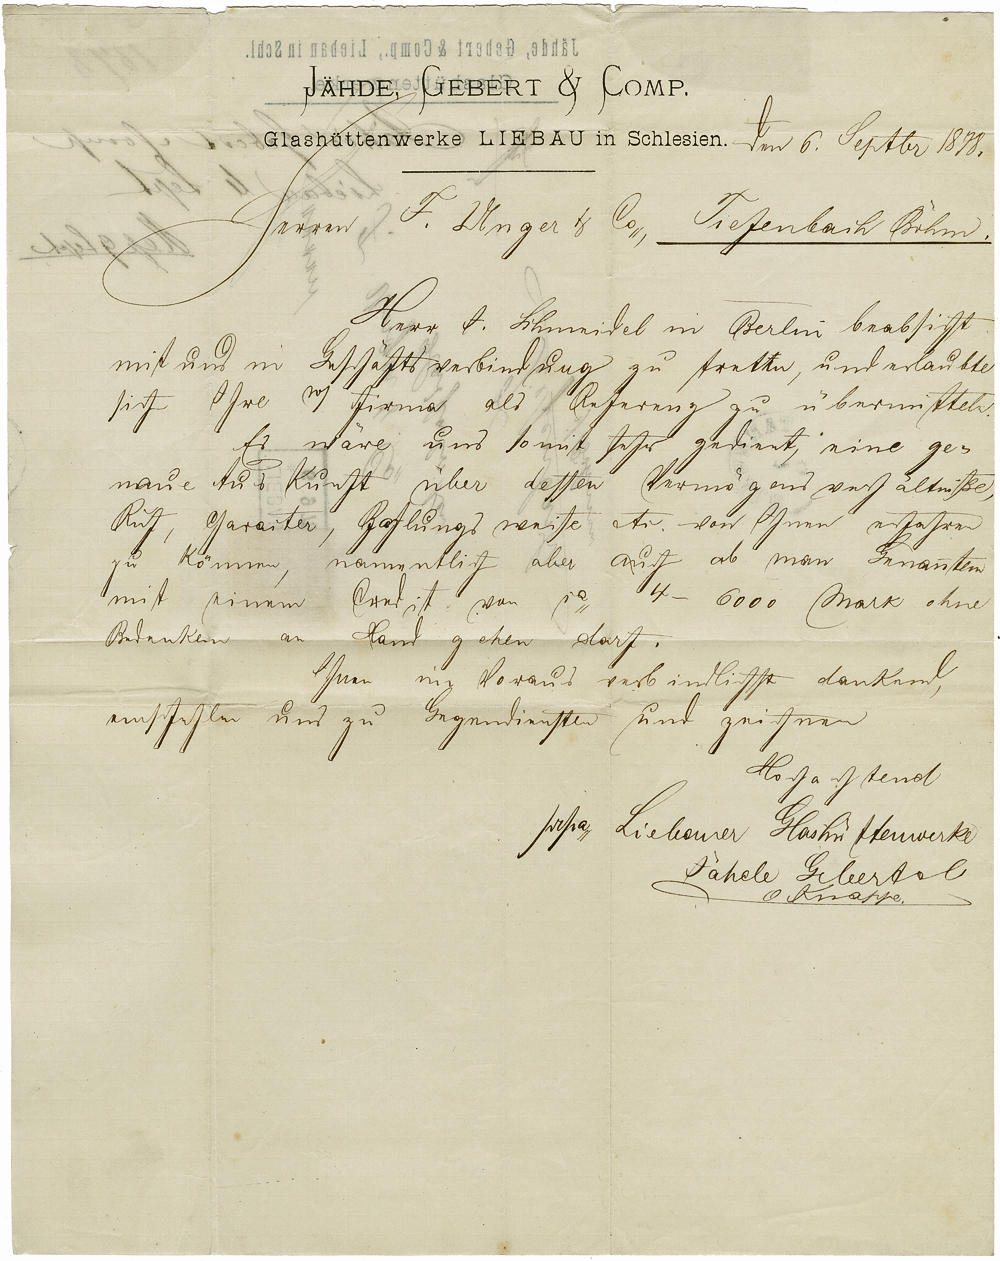 JÄHDE, GEBERT & COMP.
Glashüttenwerke LIEBAU in Schlesien.
den 6. Septbr 1878.
Herren F. Unger & Co, Tiefenbach Böhm.
Herr A. Schmeidel in Berlin beabsicht
mit uns in Geschäftsverbindung zu tretten, und erlaubte
sich Ihre w/ Firma als Referenz zu übermitteln.
Es wäre uns somit sehr gedient, eine ge-
naue Auskunft über dessen Vermögensverhältniße,
Ruf, Caracter, Zahlungsweise etc. von Ihnen erfahren
zu können, namentlich aber auch ob man Genannten
mit einem Credit von ca 4- 6000 Mark ohne
Bedenken an Hand gehen darf.
Ihnen im Voraus verbindlichst dankend,
empfehlen uns zu Gegendiensten und zeichnen
Hochachtend
prpa Liebauer Glashüttenwerke
Jähde Gebert & C
O Knappe.
Jähde, Gebert & Comp., Liebau in Schl.